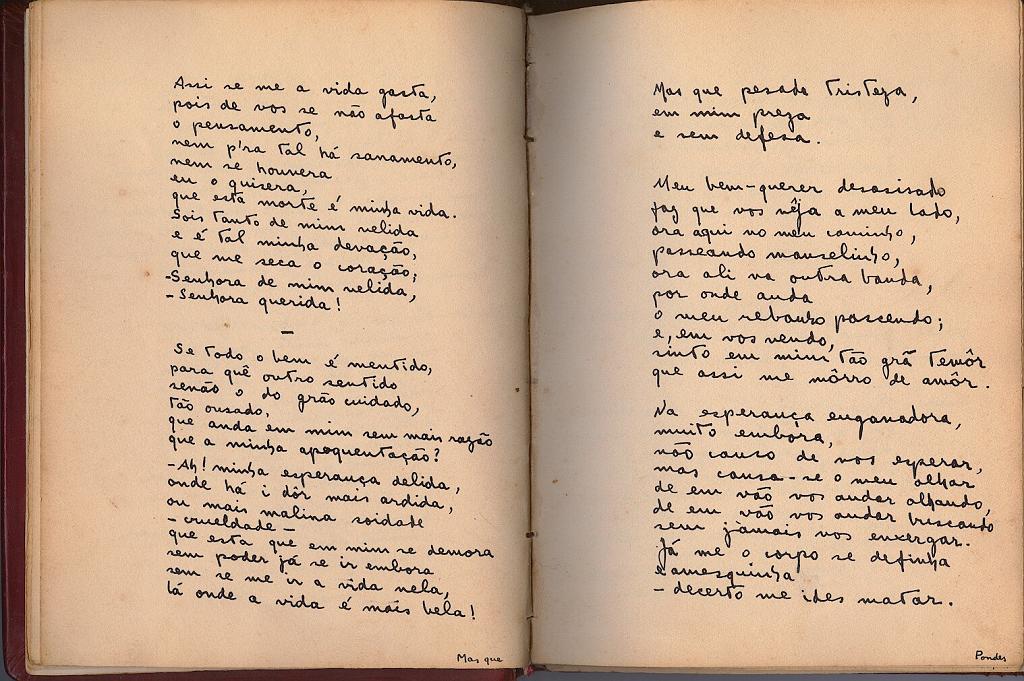 Assi se me a vida gasta,
pois de vos se não afasta
o pensamento,
nem p'ra tal há sanamento,
nem se houvera
eu o quisera,
que esta morte é minha vida.
Sois tanto de mim velida
e é tal minha devação,
que me seca o coração;
-Senhora de mim velida,
-Senhora querida!
—
Se todo o bem é mentido,
para quê outro sentido
senão o do grão cuidado,
tão ousado,
que anda em mim sem mais razão
que a minha apoquentação?
-Ah! minha esperança delida,
onde há i dôr mais ardida,
ou mais malina soidade
- crueldade -
que esta que em mim se demora
sem poder já se ir embora
sem se me ir a vida nela,
lá onde a vida é mais bela!
Mas que
Mas que pesada tristeza,
em mim preza
e sem defesa.
Meu bem-querer desasisado
faz que vos vêja a meu lado,
ora aqui no meu caminho,
passeando manselinho,
ora ali na outra banda,
por onde anda
o meu rebanho pascendo;
e, em vos vendo,
sinto em mim tão grã temôr
que assi me môrro de amôr.
Na esperança enganadora,
muito embóra,
não canso de vos esperar,
mas cansa-se o meu olhar
de em vão vos andar olhando,
de em vão vos andar buscando
sem jàmais vos enxergar.
Já me o corpo se definha
e amesquinha
- decerto me ides matar.
Pondes